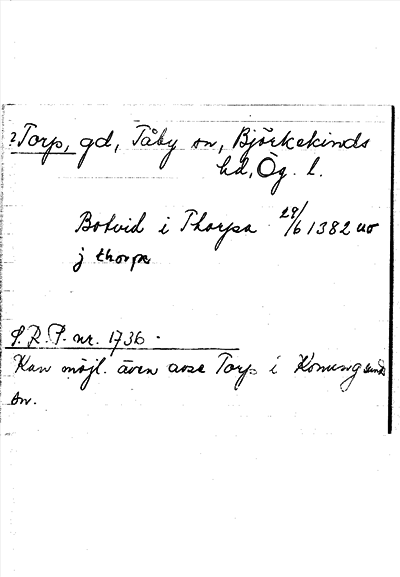 ? Torp, gd, Tåby sn, Björkekinds
hd, Ög. l.
Botvid i Thorpa 29/6 1382 uo
j thorpa
S.R.P. nr. 1736.
Kan möjl. även avse Torp i Konungsunds
sn.